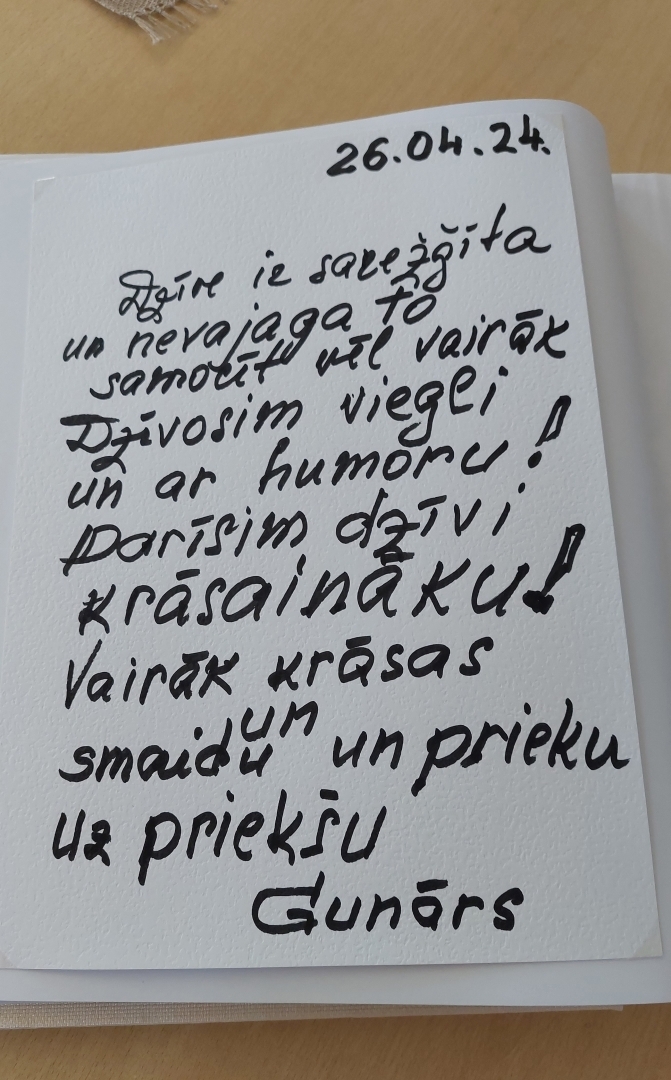 26.04.24.
Dzīve ir sarežģīta
un nevajaga to
samocīt vēl vairāk
Dzīvosim viegli
un ar humoru!
Darīsim dzīvi
krāsaināku!
Vairāk krāsas
un
smaidu un prieku
uz priekšu
Gunārs